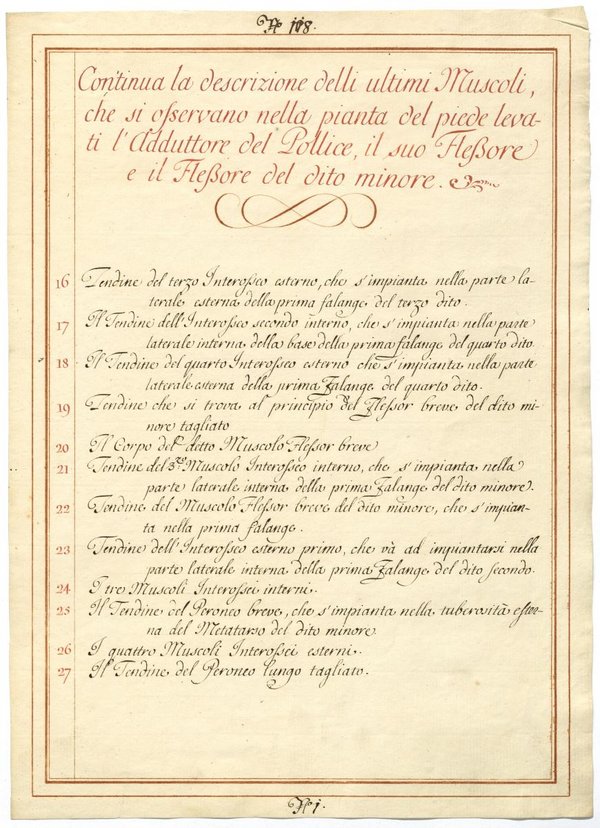 N 118.
Continua la descrizione delli ultimi Muscoli,
che si ofservano nella pianta del piede leva-
ti l'Adduttore del Pollice, il suo Fleßore
e il Fleßore del dito minore.
16 Tendine del terzo Interosseo esterno, che s'impianta nella parte la-
terale esterna della prima falange del terzo dito.
17 Il Tendine dell'Interosseo secondo interno, che s'impianta nella parte
laterale interna della base della prima falange del quarto dito
18 Il Tendine del quarto Interosseo esterno che s'impianta nella parte
laterale esterna della prima Falange del quarto dito.
19 Tendine che si trova al principio del Flessor breve del dito mi
nore tagliato
20 Il Corpo del detto Muscolo Flessor breve
21 Tendine del 3.º Muscolo Interosseo interno, che s'impianta nella
parte laterale interna della prima Falange del dito minore.
22 Tendine del Muscolo Flessor breve del dito minore, che s'impian-
ta nella prima falange.
23 Tendine dell'Interosseo esterno primo, che và ad impiantarsi nella
parte laterale interna della prima Falange del dito secondo.
24 I tre Muscoli Interossei interni.
25 Il Tendine del Peroneo breve, che s'impianta nella tuberosità ester-
na del Metatarso del dito minore
26 I quattro Muscoli Interossei esterni.
27 Il Tendine del Peroneo lungo tagliato.
N 1.